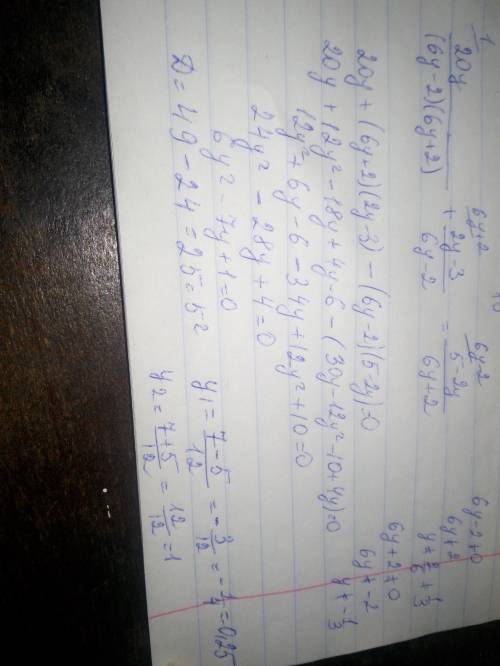 1
20y/(6y-2)(6y+2) + 2y-3/6y-2 = 5-2y/6y+2
6y+2
6y-2
20y + (6y+2)(2y-3) - (6y-2)(5-2y)=0
20y + 12y² - 18y + 4y - 6 - (30y - 12y² - 10 + 4y)=0
12y² + 6y - 6 - 34y + 12y² + 10 = 0
24y² - 28y + 4 = 0
6y² - 7y + 1 = 0
D = 49 - 24 = 25 = 5²
y1 = 7-5/12 = -3/12 = -1/4 = 0,25
y2 = 7+5/12 = 12/12 = 1
6y-2≠0
6y≠2
6y+2≠0
6y≠-2
y≠-1/3